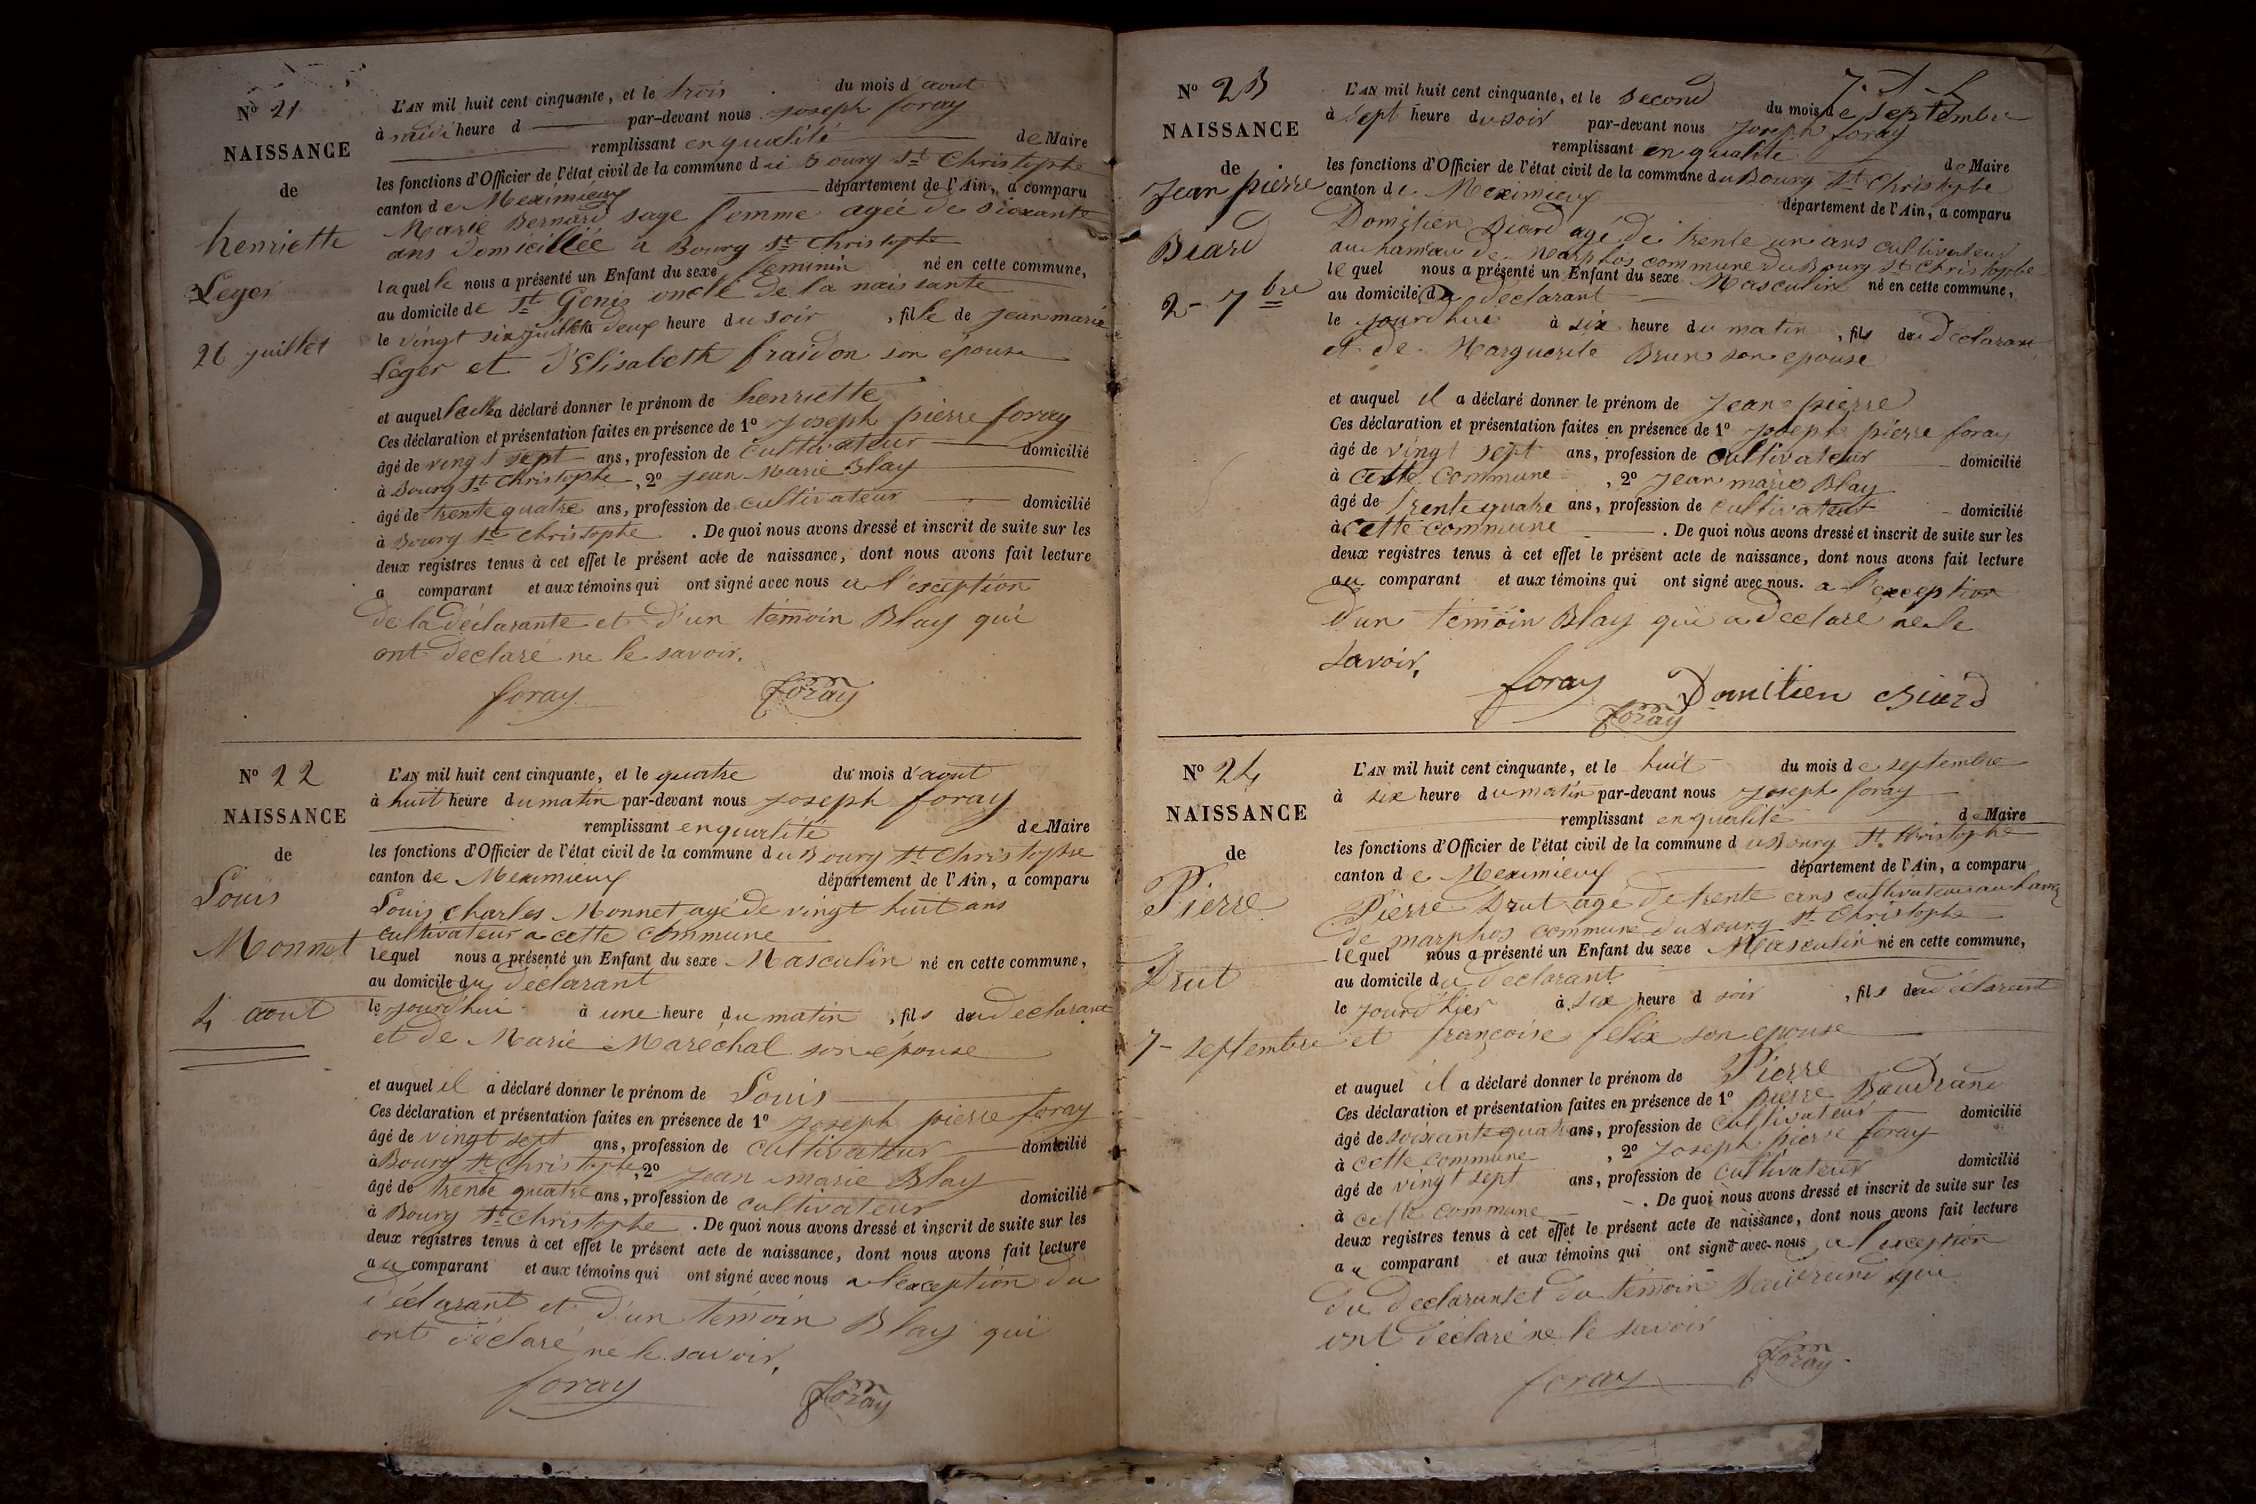 N° 21
NAISSANCE
de
henriette
Leger
26 juillet
L'AN mil huit cent cinquante, et le trois du mois d'aout
à midi heure d par-devant nous joseph foray
remplissant en qualité de Maire
les fonctions d'Officier de l'état civil de la commune du Bourg St Christophe
canton de Meximieux département de l'Ain, a comparu
Marie Bernard sage femme agée de sioxante
ans domiciliée a Bourg St Christophe
laquelle nous a présenté un Enfant du sexe feminin né en cette commune,
au domicile de St Genis oncle de la naissante
le vingt six juillet à deux heure du soir, fille de jean marie
Leger et d'Elisabeth fraidon son épouse
et auquel a déclaré donner le prénom de henriette
Ces déclaration et présentation faites en présence de 1° joseph pierre foray
âgé de vingt sept ans, profession de cultivateur domicilié
à Bourg St Christophe, 2° jean Marie Blay
âgé de trente quatre ans, profession de cultivateur domicilié
à Bourg St Christophe. De quoi nous avons dressé et inscrit de suite sur les
deux registres tenus à cet effet le présent acte de naissance, dont nous avons fait lecture
a comparant et aux témoins qui ont signé avec nous a l'exception
de la déclarante et d'un témoin Blay qui
ont declaré ne le savoir.
foray foray
N° 22
NAISSANCE
de
Louis
Monnet
4 aout
L'AN mil huit cent cinquante, et le quatre du mois d'aout
à huit heure du matin par-devant nous joseph foray
remplissant en qualité de Maire
les fonctions d'Officier de l'état civil de la commune du Bourg St Christophe
canton de Meximieux département de l'Ain, a comparu
Louis Charles Monnet agé de vingt huit ans
cultivateur a cette commune
lequel nous a présenté un Enfant du sexe Masculin né en cette commune,
au domicile du déclarant
le jourd'hui à une heure du matin, fils du declarant
et de Marie Maréchal son épouse
et auquel il a déclaré donner le prénom de Louis
Ces déclaration et présentation faites en présence de 1° joseph pierre foray
âgé de vingt sept ans, profession de cultivateur domicilié
à Bourg St Christophe, 2° jean marie Blay
âgé de trente quatre ans, profession de cultivateur domicilié
à Bourg St Christophe. De quoi nous avons dressé et inscrit de suite sur les
deux registres tenus à cet effet le présent acte de naissance, dont nous avons fait lecture
au comparant et aux témoins qui ont signé avec nous a l'exception du
déclarant et d'un témoin Blay qui
ont déclaré ne le savoir.
foray foray
N° 23
NAISSANCE
de
Jean pierre
Biard
2 - 7bre
L'AN mil huit cent cinquante, et le second du mois de septembre
à sept heure du soir par-devant nous joseph foray
remplissant en qualité de Maire
les fonctions d'Officier de l'état civil de la commune du Bourg St Christophe
canton de Meximieux département de l'Ain, a comparu
Domitien Biard agé de trente un ans cultivateur
au hameau de marphos commune du Bourg St Christophe
lequel nous a présenté un Enfant du sexe Masculin né en cette commune,
au domicile du declarant
le jourd'hui à six heure du matin, fils du declarant
et de Marguerite Brun son epouse
et auquel il a déclaré donner le prénom de Jean pierre
Ces déclaration et présentation faites en présence de 1° joseph pierre foray
âgé de vingt sept ans, profession de cultivateur domicilié
à cette commune, 2° jean marie Blay
âgé de trente quatre ans, profession de cultivateur domicilié
à cette commune. De quoi nous avons dressé et inscrit de suite sur les
deux registres tenus à cet effet le présent acte de naissance, dont nous avons fait lecture
au comparant et aux témoins qui ont signé avec nous. a l'exception
d'un témoin Blay qui a declaré ne le
savoir.
foray Domitien Biard
foray
N° 24
NAISSANCE
de
Pierre
Drut
7 - septembre
L'AN mil huit cent cinquante, et le huit du mois de septembre
à six heure du matin par-devant nous joseph foray
remplissant en qualité de Maire
les fonctions d'Officier de l'état civil de la commune du Bourg St Christophe
canton de Meximieux département de l'Ain, a comparu
Pierre Drut agé de trente ans cultivateur au ham
de marphos commune du Bourg St Christophe
lequel nous a présenté un Enfant du sexe Masculin né en cette commune,
au domicile du declarant
le jourd'hier à six heure d soir, fils du déclarant
et françoise felix son epouse
et auquel il a déclaré donner le prénom de Pierre
Ces déclaration et présentation faites en présence de 1° pierre Baudrand
âgé de soixante quatre ans, profession de cultivateur domicilié
à cette commune, 2° joseph pierre foray
âgé de vingt sept ans, profession de cultivateur domicilié
à cette commune. De quoi nous avons dressé et inscrit de suite sur les
deux registres tenus à cet effet le présent acte de naissance, dont nous avons fait lecture
au comparant et aux témoins qui ont signé avec nous a l'exception
du declarant et du témoin Baudrand qui
ont déclaré ne le savoir
foray foray